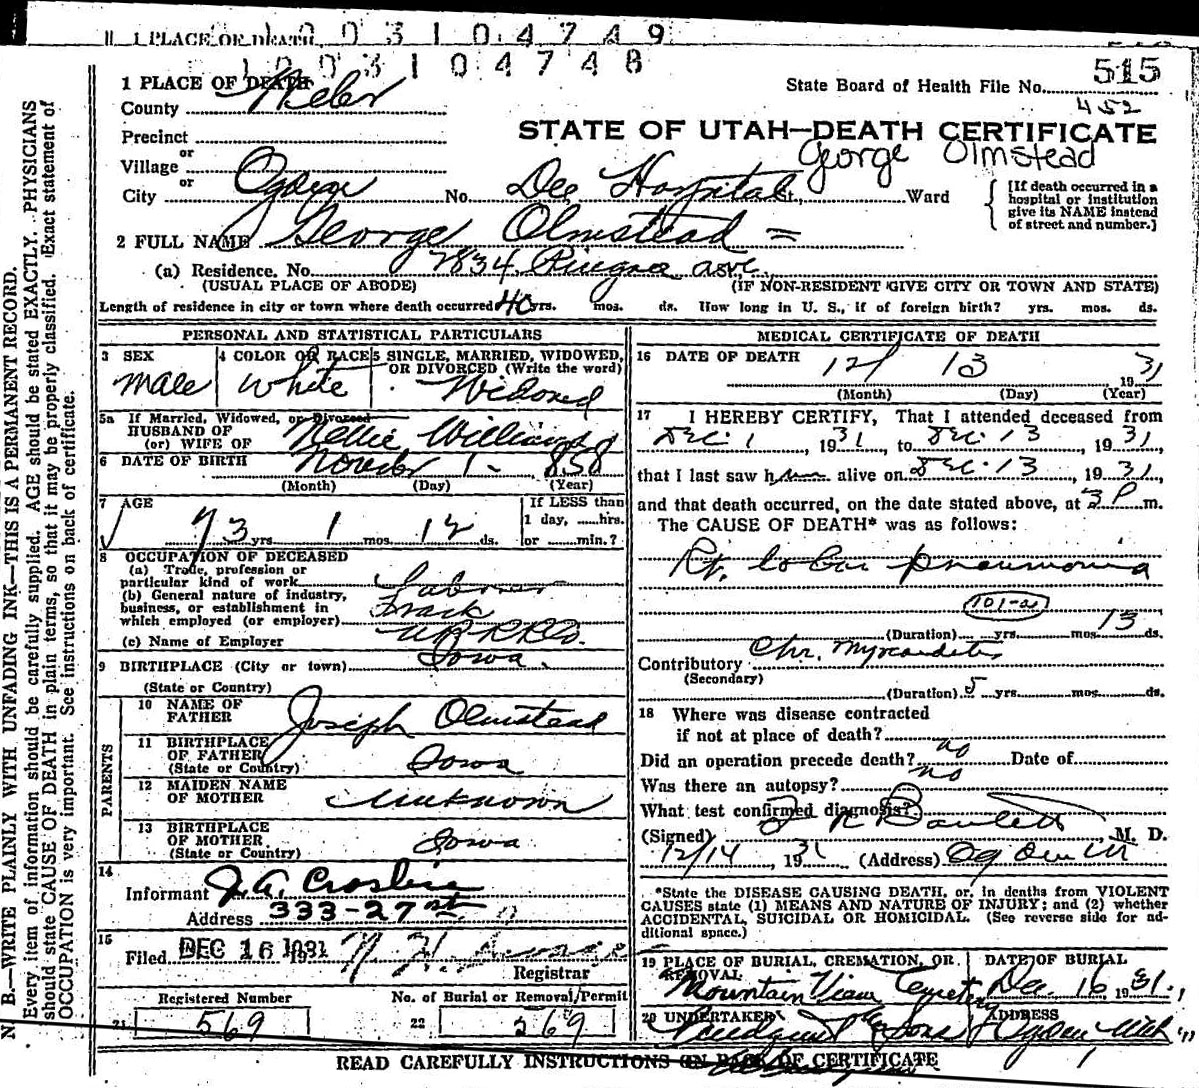 1 PLACE OF DEATH 1 0 0 3 1 0 4 7 4 9
1 0 0 3 1 0 4 7 4 8
515
State Board of Health File No.
452
1 PLACE OF DEATH
County Weber
Precinct
or
Village
or
City Ogden No. Dee Hospital St., Ward
STATE OF UTAH—DEATH CERTIFICATE
George Olmstead
[If death occurred in a
hospital or institution
give its NAME instead
of street and number.]
2 FULL NAME George Olmstead
(a) Residence. No. 2834 Pingree ave.
(USUAL PLACE OF ABODE) (IF NON-RESIDENT GIVE CITY OR TOWN AND STATE)
Length of residence in city or town where death occurred 40 yrs. mos. ds. How long in U. S., if of foreign birth? yrs. mos. ds.
PERSONAL AND STATISTICAL PARTICULARS
3 SEX
male
4 COLOR OR RACE
White
5 SINGLE, MARRIED, WIDOWED,
OR DIVORCED (Write the word)
Widowed
5a If Married, Widowed, or Divorced
HUSBAND OF
(or) WIFE OF Nellie Williams
6 DATE OF BIRTH November 1 - 1858
(Month) (Day) (Year)
7 AGE
73 yrs 1 mos. 12 ds.
If LESS than
1 day, hrs.
or min.?
8 OCCUPATION OF DECEASED
(a) Trade, profession or
particular kind of work Laborer
(b) General nature of industry,
business, or establishment in
which employed (or employer) Track
(c) Name of Employer U.P.R.R.Co.
9 BIRTHPLACE (City or town) Iowa.
(State or Country)
PARENTS
10 NAME OF
FATHER Joseph Olmstead
11 BIRTHPLACE
OF FATHER
(State or Country) Iowa
12 MAIDEN NAME
OF MOTHER Unknown
13 BIRTHPLACE
OF MOTHER
(State or Country) Iowa
14
Informant J.A. Crosbie
Address 333-27 st.
15
Filed DEC 16 1931
Registrar
Registered Number
21 569
No. of Burial or Removal Permit
22 569
MEDICAL CERTIFICATE OF DEATH
16 DATE OF DEATH 12/ 13 1931
(Month) (Day) (Year)
17 I HEREBY CERTIFY, That I attended deceased from
Dec. 1, 1931, to Dec. 13 1931
that I last saw him alive on Dec. 13, 1931,
and that death occurred, on the date stated above, at 3 P m.
The CAUSE OF DEATH* was as follows:
Rt. lobar pneumonia
101-a
(Duration) yrs. mos. 13 ds.
Contributory Chr. Myocarditis
(Secondary)
(Duration) 5 yrs. mos. ds.
18 Where was disease contracted
if not at place of death?
Did an operation precede death? no Date of
Was there an autopsy? no
What test confirmed diagnosis?
(Signed) Bartlett, M. D.
12/14, 1931 (Address) Ogden Ut
*State the DISEASE CAUSING DEATH, or, in deaths from VIOLENT
CAUSES state (1) MEANS AND NATURE OF INJURY; and (2) whether
ACCIDENTAL, SUICIDAL OR HOMICIDAL. (See reverse side for ad-
ditional space.)
19 PLACE OF BURIAL, CREMATION, OR
REMOVAL
Mountain View Cemetery
DATE OF BURIAL
Dec. 16, 1931.
20 UNDERTAKER
Lindquist & Sons
ADDRESS
Ogden Utah
READ CAREFULLY INSTRUCTIONS ON BACK OF CERTIFICATE
N. B.—WRITE PLAINLY WITH UNFADING INK—THIS IS A PERMANENT RECORD.
Every item of information should be carefully supplied. AGE should be stated EXACTLY. PHYSICIANS
should state CAUSE OF DEATH in plain terms, so that it may be properly classified. Exact statement of
OCCUPATION is very important. See instructions on back of certificate.